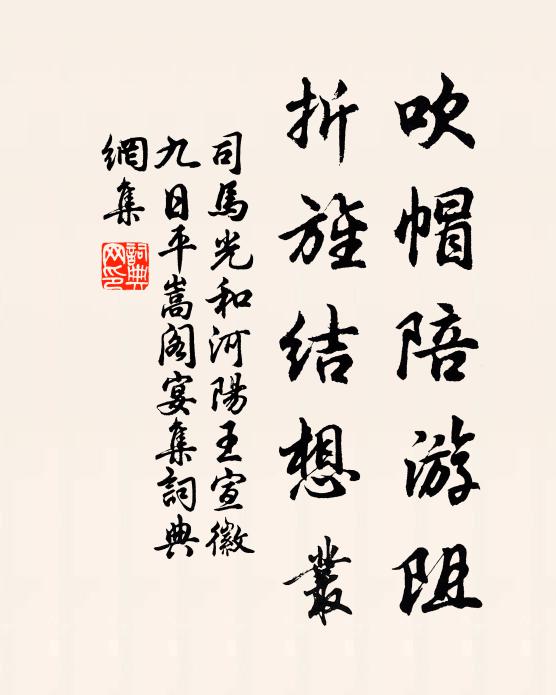 吹帽陪游阻
折旌结想丛
司馬光和河陽王宣徽
九日平嵩阁宴集詞典
網集
詞典
网印